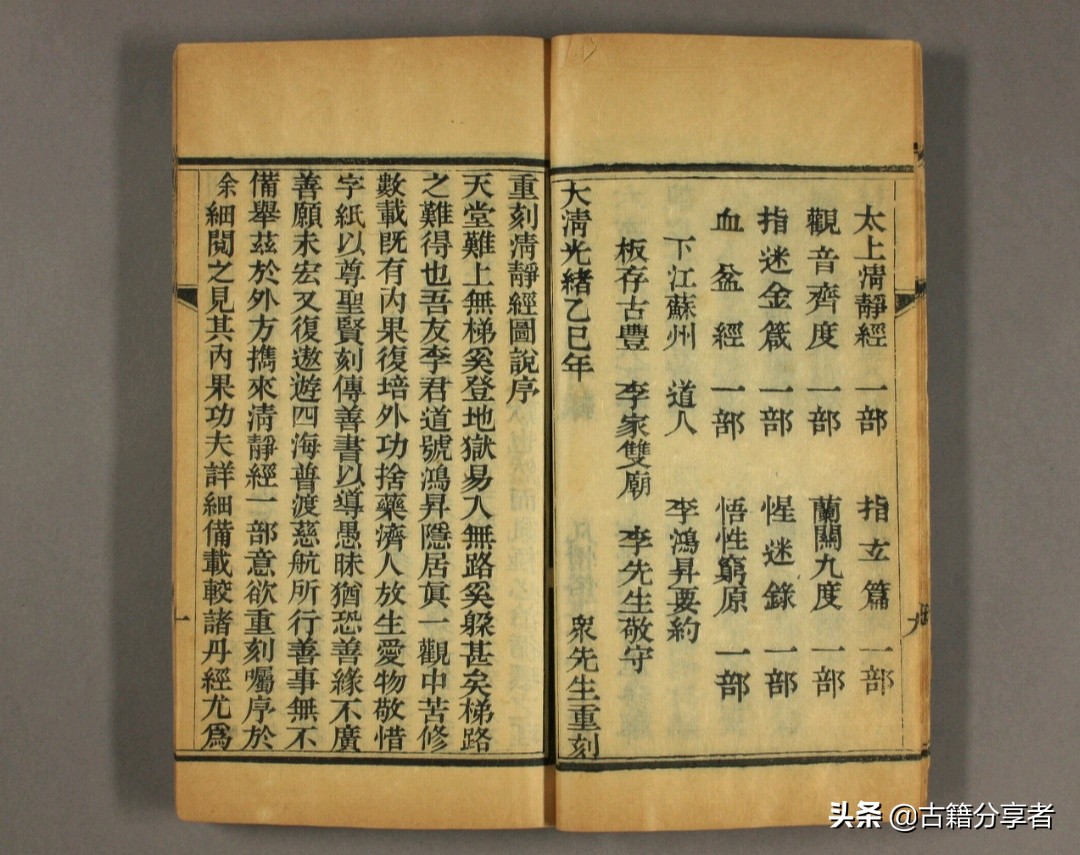 太上淸靜經 一部 指玄篇 一部
觀音齊度 一部 蘭關九度 一部
指迷金箴 一部 惺迷錄 一部
血盆經 一部 悟性窮原 一部
下江蘇州 道人 李鴻昇要約
板存古豐 李家雙廟 李先生敬守
大淸光緖乙巳年 衆先生重刻
重刻淸靜經圖說序
天堂難上無梯奚登地獄易入無路奚躱甚矣梯路
之難得也吾友李君道號鴻昇隱居眞一觀中苦修
數載旣有內果復培外功捨藥濟人放生愛物敬惜
字紙以尊聖賢刻傳善書以導愚昧猶恐善緣不廣
善願未宏又復遨遊四海普渡慈航所行善事無不
備舉茲於外方擕來淸靜經一部意欲重刻囑序於
余細閱之見其內果功夫詳細備載較諸丹經尤爲
一
头条 @古籍分享者